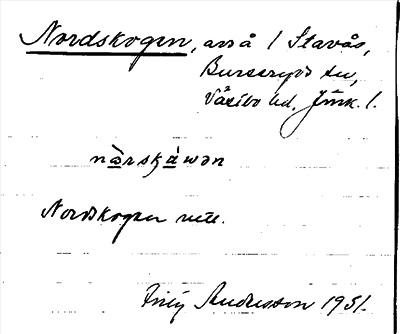 Nordskogen, avs å / Stavås,
Burseryds sn,
Västbo hd, Jönk. l.
nàrskáwən
Nordskogen rute.
Andersson 1931.